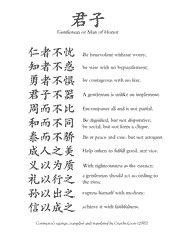 君子
Gentleman or Man of Honor
仁者不忧 Be benevolent without worry,
知者不惑 be wise with no bepuzzlement;
勇者不惧 be courageous with no fear.
君子不器 A gentleman is unlike an implement:
周而不比 Encompasses all and is not partial.
和而不同 Be dignified, but not disputative;
be social, but not form a clique.
泰而不骄 Be at peace and ease, but not arrogant.
成人之美 Help others to fulfill good, not vice.
义以为质 With righteousness as the essence;
礼以行之 a gentleman should act according to
the rites;
孙以出之 express himself with modesty;
信以成之 achieve it with faithfulness.
Confucius's sayings, compiled and translated by